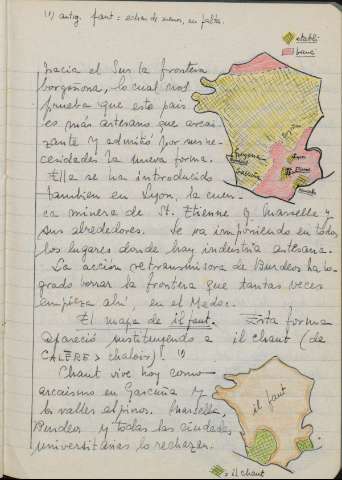 (1) antig. faut = echar de menos, en falta.
établi
banc
hacia el Sur la frontera
borgoñona, lo cual nos
prueba que este país
es más artesano que arcai-
zante y admitió por sus ne-
cesidades la nueva forma.
Ella se ha introducido
tambien en Lyon, la cuen-
ca minera de St. Etienne y Marsella y
sus alrededores. Se va imponiendo en todos
los lugares donde hay industria artesana.
La acción retransmisora de Burdeos ha lo-
grado borrar la frontera que tantas veces
empieza ahí, en el Medoc.
El mapa de il faut. Esta forma
apareció sustituyendo a il chaut (de
CALĒRE > chaloir)! (1)
Chaut vive hoy como
arcaismo en Gascuña y
los valles alpinos. Marsella,
Burdeos y todas las ciudades
universitarias lo rechazan.
Guyena
Gascuña
Lyon
il faut
= il chaut